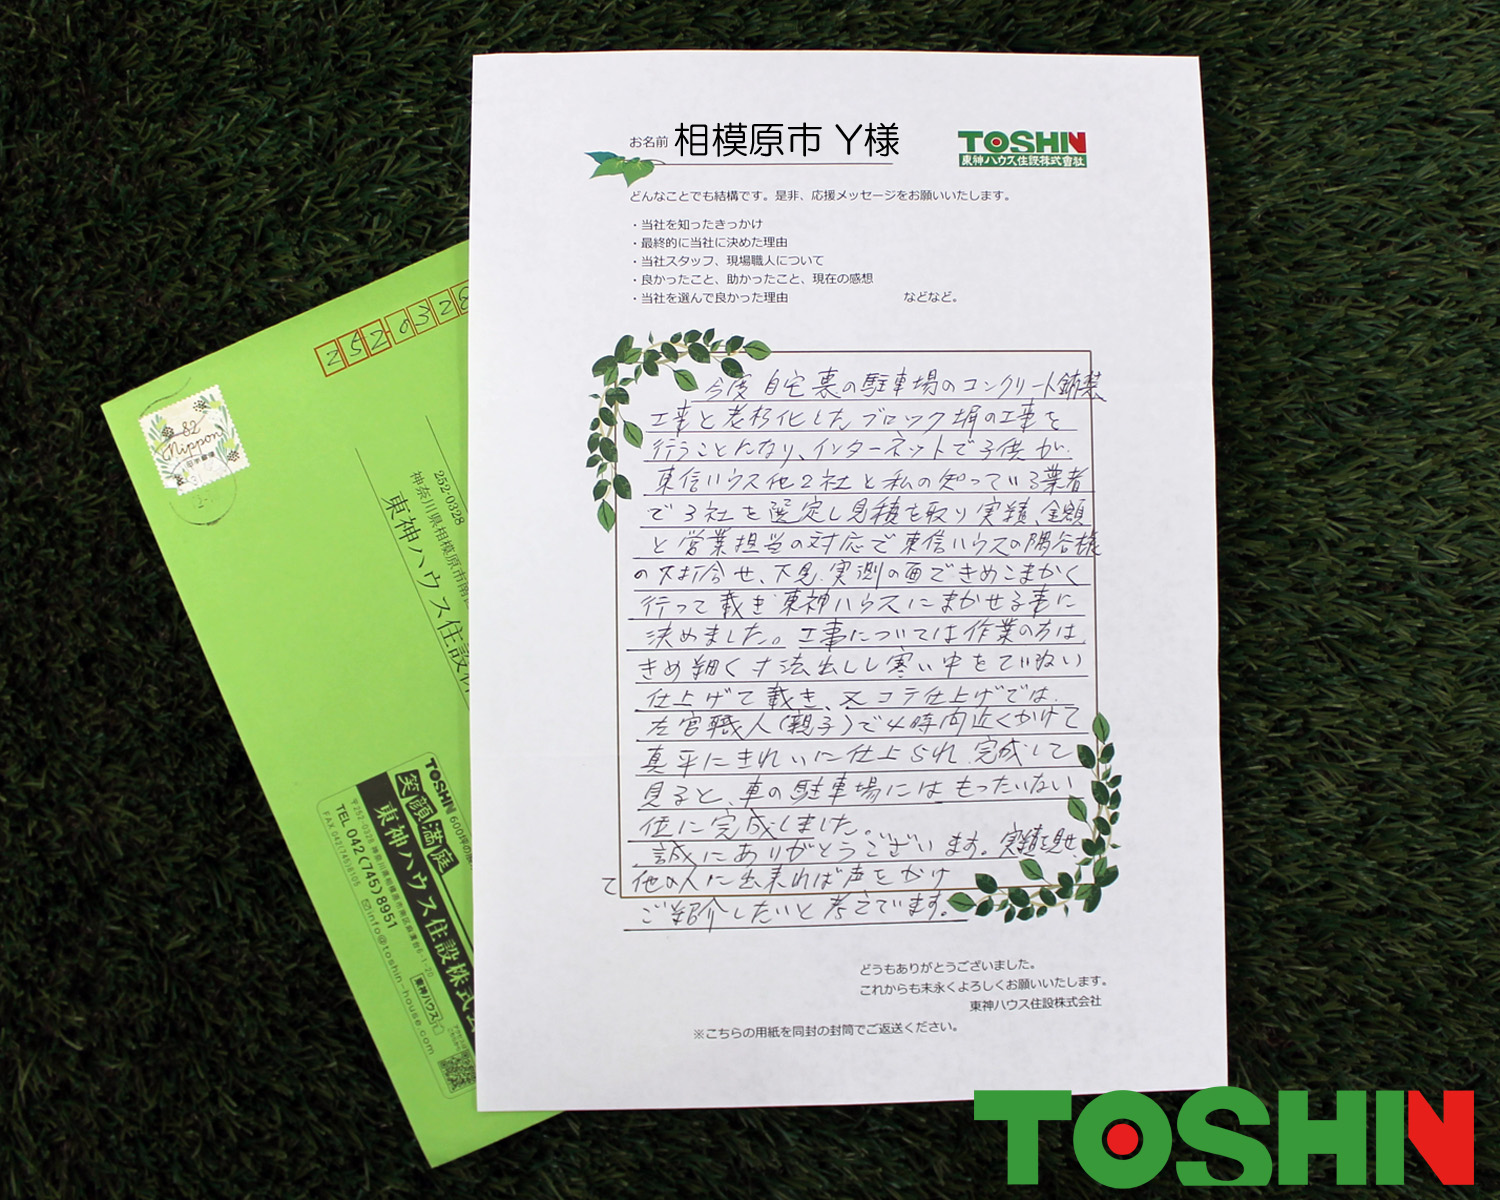 お名前 相模原市 Y様
TOSHIN
東神ハウス住設株式會社
どんなことでも結構です。是非、応援メッセージをお願いいたします。
・当社を知ったきっかけ
・最終的に当社に決めた理由
・当社スタッフ、現場職人について
・良かったこと、助かったこと、現在の感想
・当社を選んで良かった理由 などなど。
今度 自宅裏の駐車場のコンクリート舗装
工事と老朽化したブロック塀の工事を
行うことになり、インターネットで子供が
東信ハウス他2社と私の知っている業者
で3社を選定し見積を取り実績、金額
と営業担当の対応で東信ハウスの隅谷様
の下打合せ、下見、実測の面できめこまかく
行って載き東神ハウスにまかせる事に
決めました。工事については作業の方は
きめ細く寸法出しし寒い中をていねい
仕上げて載き、又コテ仕上げでは、
左官職人(親子)で4時間近くかけて
真平にきれいに仕上られ、完成して
見ると、車の駐車場にはもったいない
位に完成しました。
誠にありがとうございます。実績を見せ
て他の人に出来れば声をかけ
ご紹介したいと考えています。
どうもありがとうございました。
これからも末永くよろしくお願いいたします。
東神ハウス住設株式会社
※こちらの用紙を同封の封筒でご返送ください。
2520328
82
Nippon
252-0328
神奈川県相模原市南
東神ハウス住設株
TOSHIN 600坪の
笑顔満庭
東神ハウス住設株式会
〒252-0328 神奈川県相模原市南区麻溝台6-1-20
TEL 042(745)8951
FAX 042(745)6105
info@toshin-house.com
東神ハウス
TOSHIN